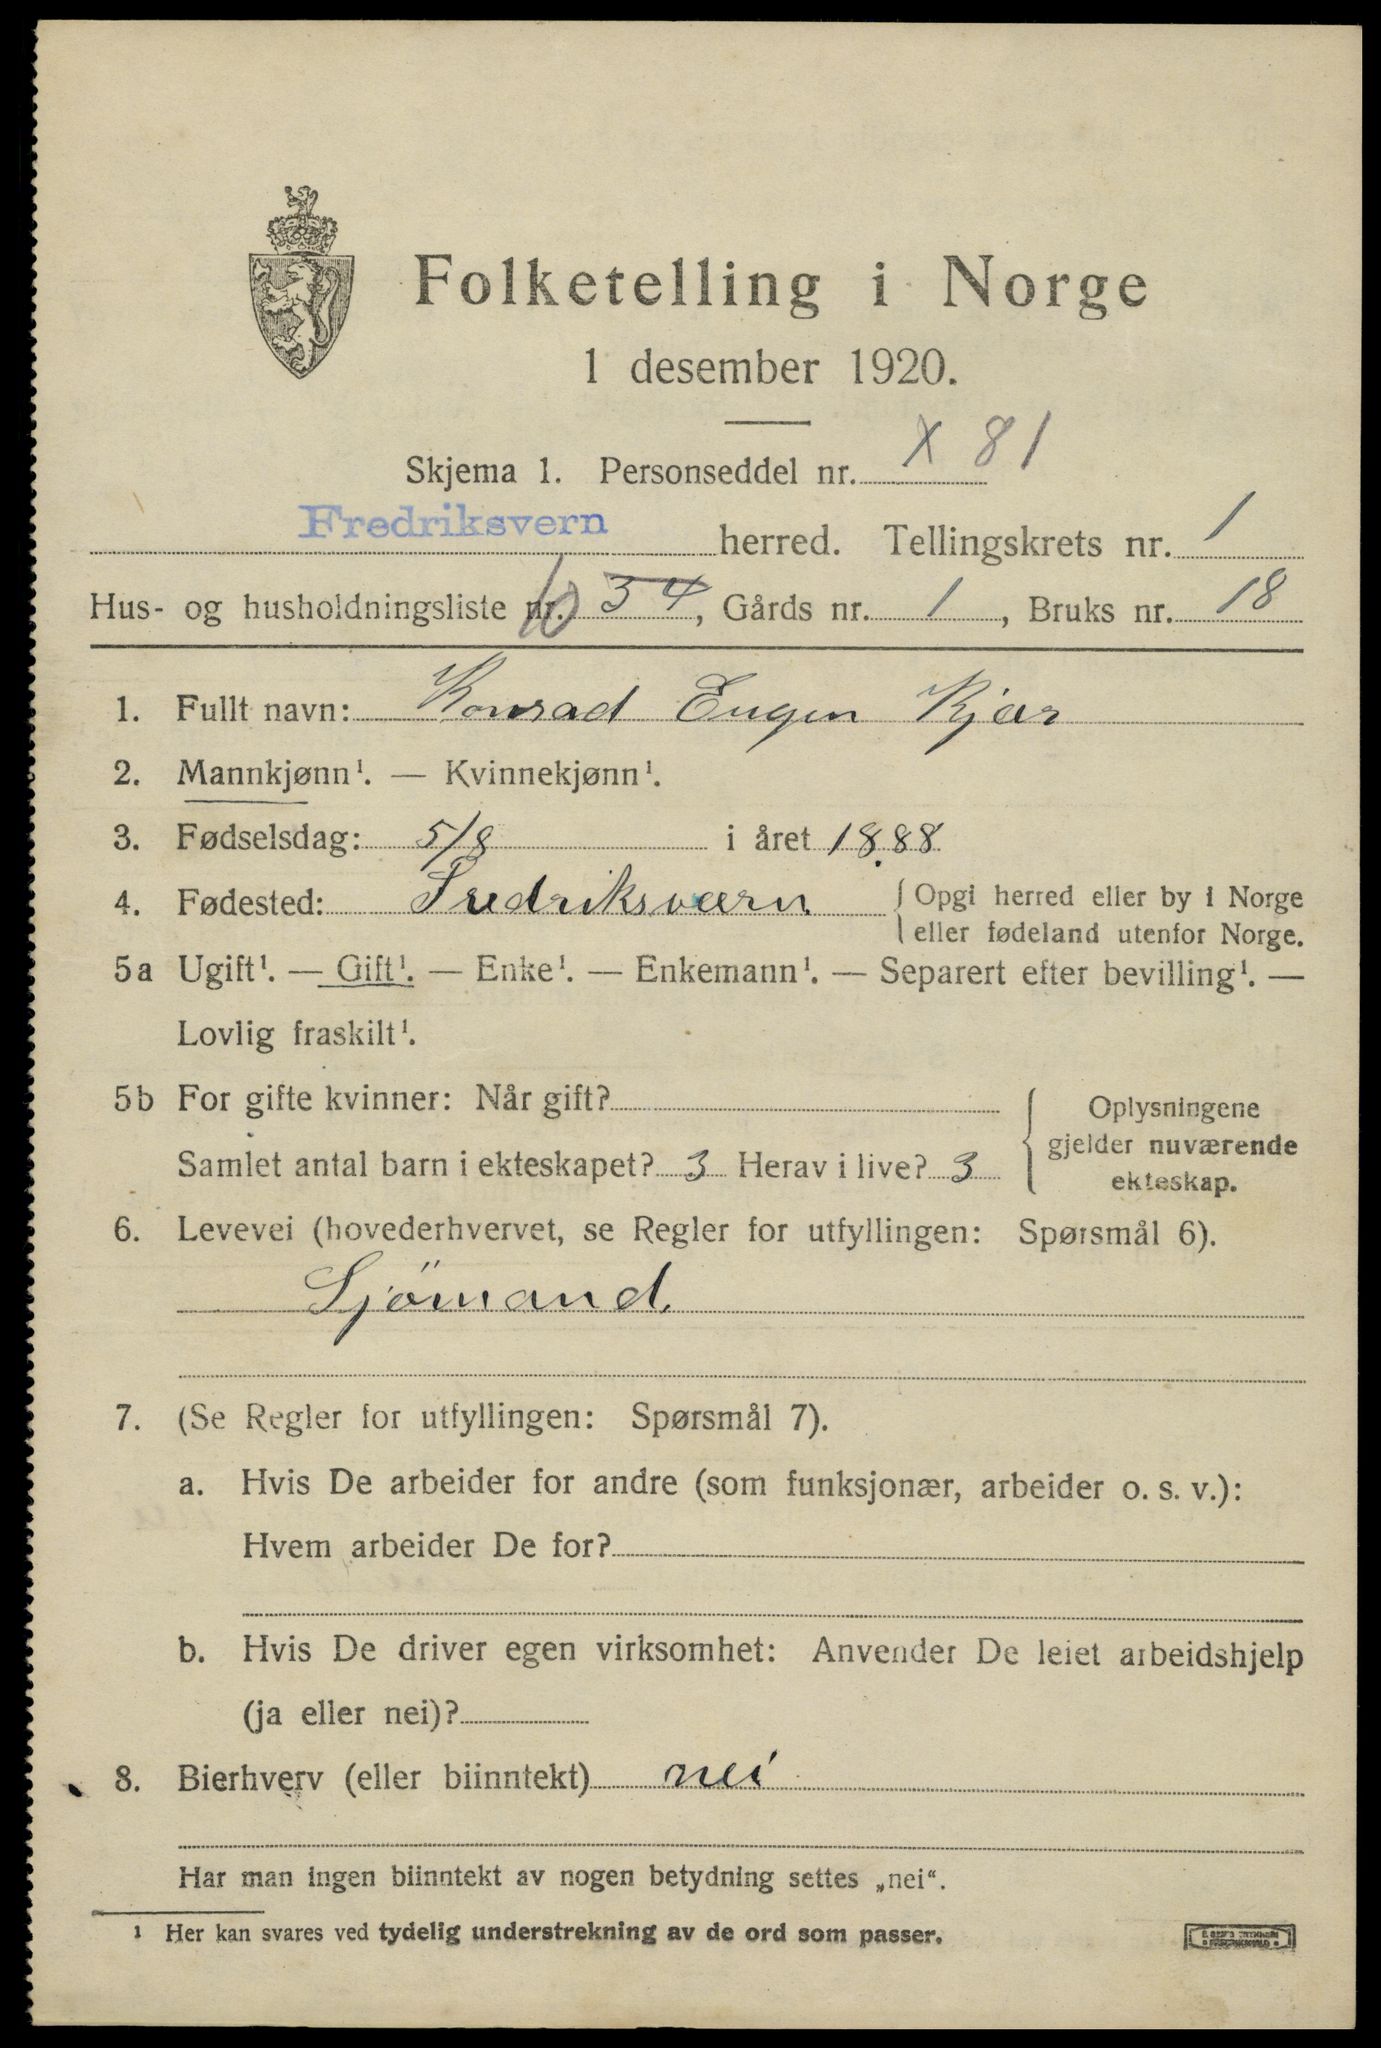 Folketelling i Norge
1 desember 1920.
Skjema 1. Personseddel nr. X 81
Fredriksvern herred. Tellingskrets nr. 1
Hus- og husholdningsliste nr. 10 34, Gårds nr. 1, Bruks nr. 18
1. Fullt navn: Konrad Eugen Kjær
2. Mannkjønn¹. — Kvinnekjønn¹.
3. Fødselsdag: 5/8 i året 1888
4. Fødested: Fredriksværn { Opgi herred eller by i Norge
eller fødeland utenfor Norge.
5a Ugift¹. — Gift¹. — Enke¹. — Enkemann¹. — Separert efter bevilling¹. —
Lovlig fraskilt¹.
5b For gifte kvinner: Når gift?
Samlet antal barn i ekteskapet? 3 Herav i live? 3
{ Oplysningene
gjelder nuværende
ekteskap.
6. Levevei (hovederhvervet, se Regler for utfyllingen: Spørsmål 6).
Sjömand.
7. (Se Regler for utfyllingen: Spørsmål 7).
a. Hvis De arbeider for andre (som funksjonær, arbeider o. s. v.):
Hvem arbeider De for?
b. Hvis De driver egen virksomhet: Anvender De leiet arbeidshjelp
(ja eller nei)?
8. Bierhverv (eller biinntekt) nei
Har man ingen biinntekt av nogen betydning settes „nei“.
¹ Her kan svares ved tydelig understrekning av de ord som passer.